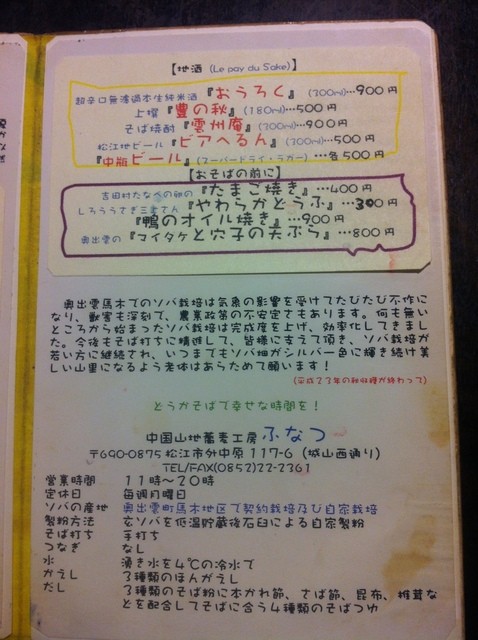 【地酒 (Le pay du Sake)】
超辛口無濾過本生純米酒『おうろく』(300ml)…900円
上撰『豊の秋』(180ml)…500円
そば焼酎『雲州庵』(200ml)…900円
松江地ビール『ビアへるん』(300ml)…500円
『中瓶ビール』(スーパードライ・ラガー)…各500円
【おそばの前に】
吉田村たなべの卵の『たまご焼き』…400円
しろうさぎ三幸さん『やわらかとうふ』…300円
『鴨のオイル焼き』…900円
奥出雲の『マイタケと穴子の天ぷら』…800円
奥出雲馬木でのソバ栽培は気象の影響を受けてたびたび不作に
なり、獣害も深刻で、農業政策の不安定さもあります。何も無い
ところから始まったソバ栽培は完成度を上げ、効率化してきまし
た。今後もそば打ちに精進して、皆様に支えて頂き、ソバ栽培が
若い方に継続され、いつまでもソバ畑がシルバー色に輝き続け美
しい山里になるよう老体はあらためて願います！
(平成23年の秋収穫が終わって)
どうかそばで幸せな時間を！
中国山地蕎麦工房 ふなつ
〒690-0875 松江市外中原117-6 (城山西通り)
TEL/FAX(0852)22-2361
営業時間 11時〜20時
定休日 毎週月曜日
ソバの産地 奥出雲町馬木地区で契約栽培及び自家栽培
製粉方法 玄ソバを低温貯蔵後石臼による自家製粉
そば打ち 手打ち
つなぎ なし
水 湧き水を4℃の冷水で
かえし 3種類のほんがえし
だし 3種類のそば粉に本かわ節、さば節、昆布、椎茸な
どを配合してそばに合う4種類のそばつゆ